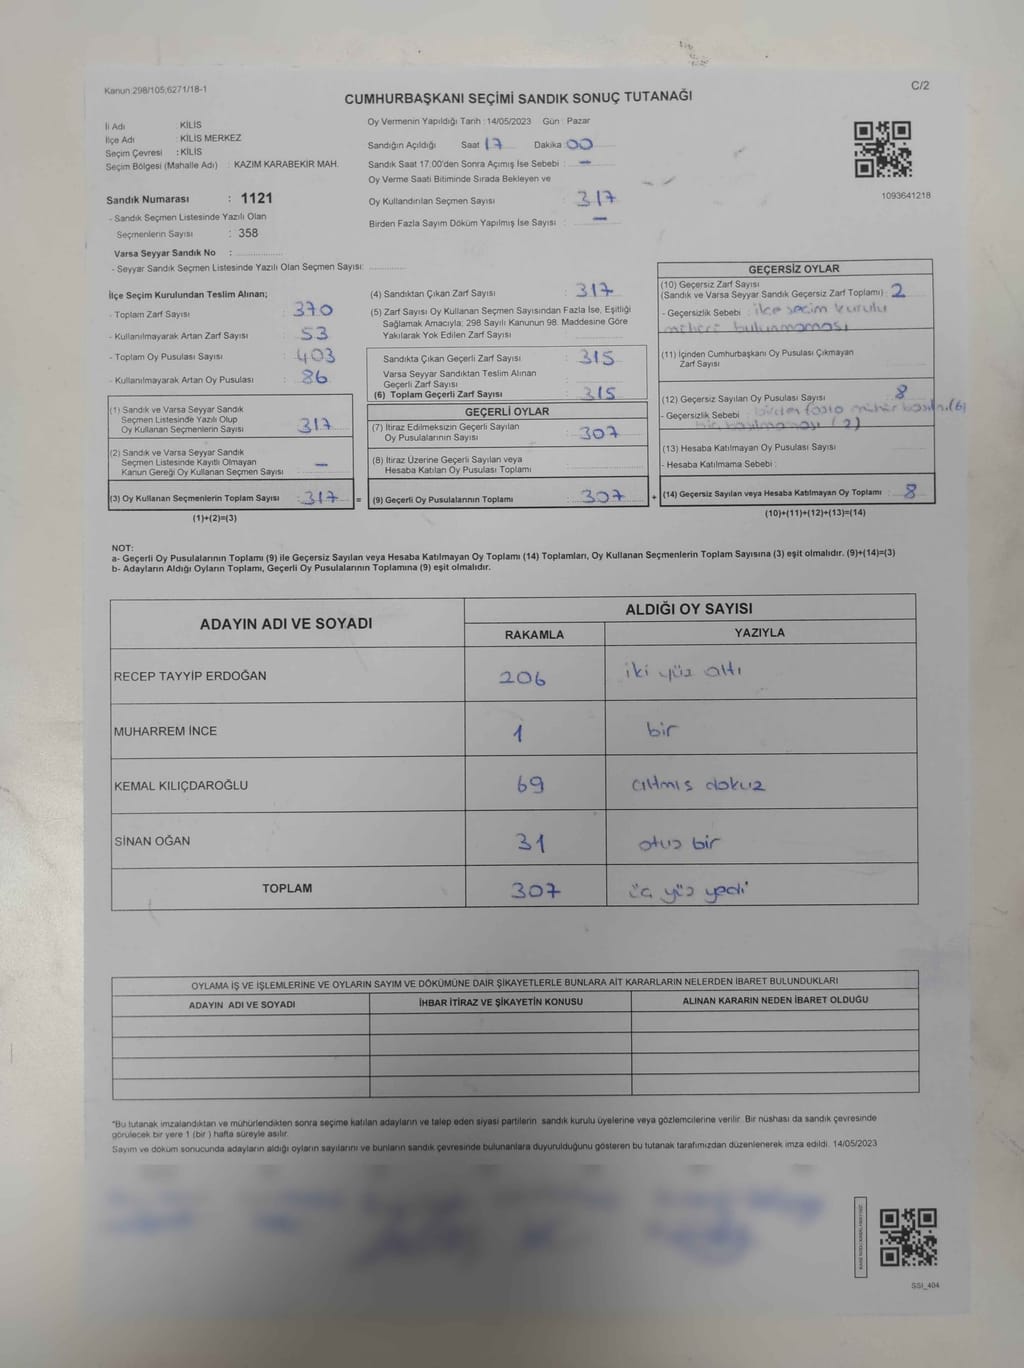 Kanun 298/105;6271/18-1
C/2
CUMHURBAŞKANI SEÇİMİ SANDIK SONUÇ TUTANAĞI
İl Adı : KİLİS
İlçe Adı : KİLİS MERKEZ
Seçim Çevresi : KİLİS
Seçim Bölgesi (Mahalle Adı) : KAZIM KARABEKİR MAH.
Sandık Numarası : 1121
- Sandık Seçmen Listesinde Yazılı Olan
Seçmenlerin Sayısı : 358
Varsa Seyyar Sandık No :
- Seyyar Sandık Seçmen Listesinde Yazılı Olan Seçmen Sayısı:
Oy Vermenin Yapıldığı Tarih : 14/05/2023 Gün : Pazar
Sandığın Açıldığı Saat 17 Dakika 00
Sandık Saat 17:00'den Sonra Açımış İse Sebebi : —
Oy Verme Saati Bitiminde Sırada Bekleyen ve
Oy Kullandırılan Seçmen Sayısı : 317
Birden Fazla Sayım Döküm Yapılmış İse Sayısı : —
1093641218
İlçe Seçim Kurulundan Teslim Alınan;
- Toplam Zarf Sayısı : 370
- Kullanılmayarak Artan Zarf Sayısı : 53
- Toplam Oy Pusulası Sayısı : 403
- Kullanılmayarak Artan Oy Pusulası : 86
(1) Sandık ve Varsa Seyyar Sandık
Seçmen Listesinde Yazılı Olup
Oy Kullanan Seçmenlerin Sayısı : 317
(2) Sandık ve Varsa Seyyar Sandık
Seçmen Listesinde Kayıtlı Olmayan
Kanun Gereği Oy Kullanan Seçmen Sayısı : —
(3) Oy Kullanan Seçmenlerin Toplam Sayısı : 317 =
(1)+(2)=(3)
(4) Sandıktan Çıkan Zarf Sayısı : 317
(5) Zarf Sayısı Oy Kullanan Seçmen Sayısından Fazla İse, Eşitliği
Sağlamak Amacıyla; 298 Sayılı Kanunun 98. Maddesine Göre
Yakılarak Yok Edilen Zarf Sayısı :
Sandıkta Çıkan Geçerli Zarf Sayısı : 315
Varsa Seyyar Sandıktan Teslim Alınan
Geçerli Zarf Sayısı :
(6) Toplam Geçerli Zarf Sayısı : 315
GEÇERLİ OYLAR
(7) İtiraz Edilmeksizin Geçerli Sayılan
Oy Pusulalarının Sayısı : 307
(8) İtiraz Üzerine Geçerli Sayılan veya
Hesaba Katılan Oy Pusulası Toplamı :
(9) Geçerli Oy Pusulalarının Toplamı : 307 +
GEÇERSİZ OYLAR
(10) Geçersiz Zarf Sayısı
(Sandık ve Varsa Seyyar Sandık Geçersiz Zarf Toplamı) : 2
- Geçersizlik Sebebi : ilçe seçim kurulu
mührü bulunmaması
(11) İçinden Cumhurbaşkanı Oy Pusulası Çıkmayan
Zarf Sayısı :
(12) Geçersiz Sayılan Oy Pusulası Sayısı : 8
- Geçersizlik Sebebi : birden fazla mühür (6)
(2)
(13) Hesaba Katılmayan Oy Pusulası Sayısı :
- Hesaba Katılmama Sebebi :
(14) Geçersiz Sayılan veya Hesaba Katılmayan Oy Toplamı : 8
(10)+(11)+(12)+(13)=(14)
NOT:
a- Geçerli Oy Pusulalarının Toplamı (9) ile Geçersiz Sayılan veya Hesaba Katılmayan Oy Toplamı (14) Toplamları, Oy Kullanan Seçmenlerin Toplam Sayısına (3) eşit olmalıdır. (9)+(14)=(3)
b- Adayların Aldığı Oyların Toplamı, Geçerli Oy Pusulalarının Toplamına (9) eşit olmalıdır.
ADAYIN ADI VE SOYADI ALDIĞI OY SAYISI
RAKAMLA YAZIYLA
RECEP TAYYİP ERDOĞAN 206 iki yüz altı
MUHARREM İNCE 1 bir
KEMAL KILIÇDAROĞLU 69 altmış dokuz
SİNAN OĞAN 31 otuz bir
TOPLAM 307 üç yüz yedi
OYLAMA İŞ VE İŞLEMLERİNE VE OYLARIN SAYIM VE DÖKÜMÜNE DAİR ŞİKAYETLERLE BUNLARA AİT KARARLARIN NELERDEN İBARET BULUNDUKLARI
ADAYIN ADI VE SOYADI İHBAR İTİRAZ VE ŞİKAYETİN KONUSU ALINAN KARARIN NEDEN İBARET OLDUĞU
"Bu tutanak imzalandıktan ve mühürlendikten sonra seçime katılan adayların ve talep eden siyasi partilerin sandık kurulu üyelerine veya gözlemcilerine verilir. Bir nüshası da sandık çevresinde
görülecek bir yere 1 (bir ) hafta süreyle asılır.
Sayım ve döküm sonucunda adayların aldığı oyların sayılarını ve bunların sandık çevresinde bulunanlara duyurulduğunu gösteren bu tutanak tarafımızdan düzenlenerek imza edildi. 14/05/2023
SSI_404